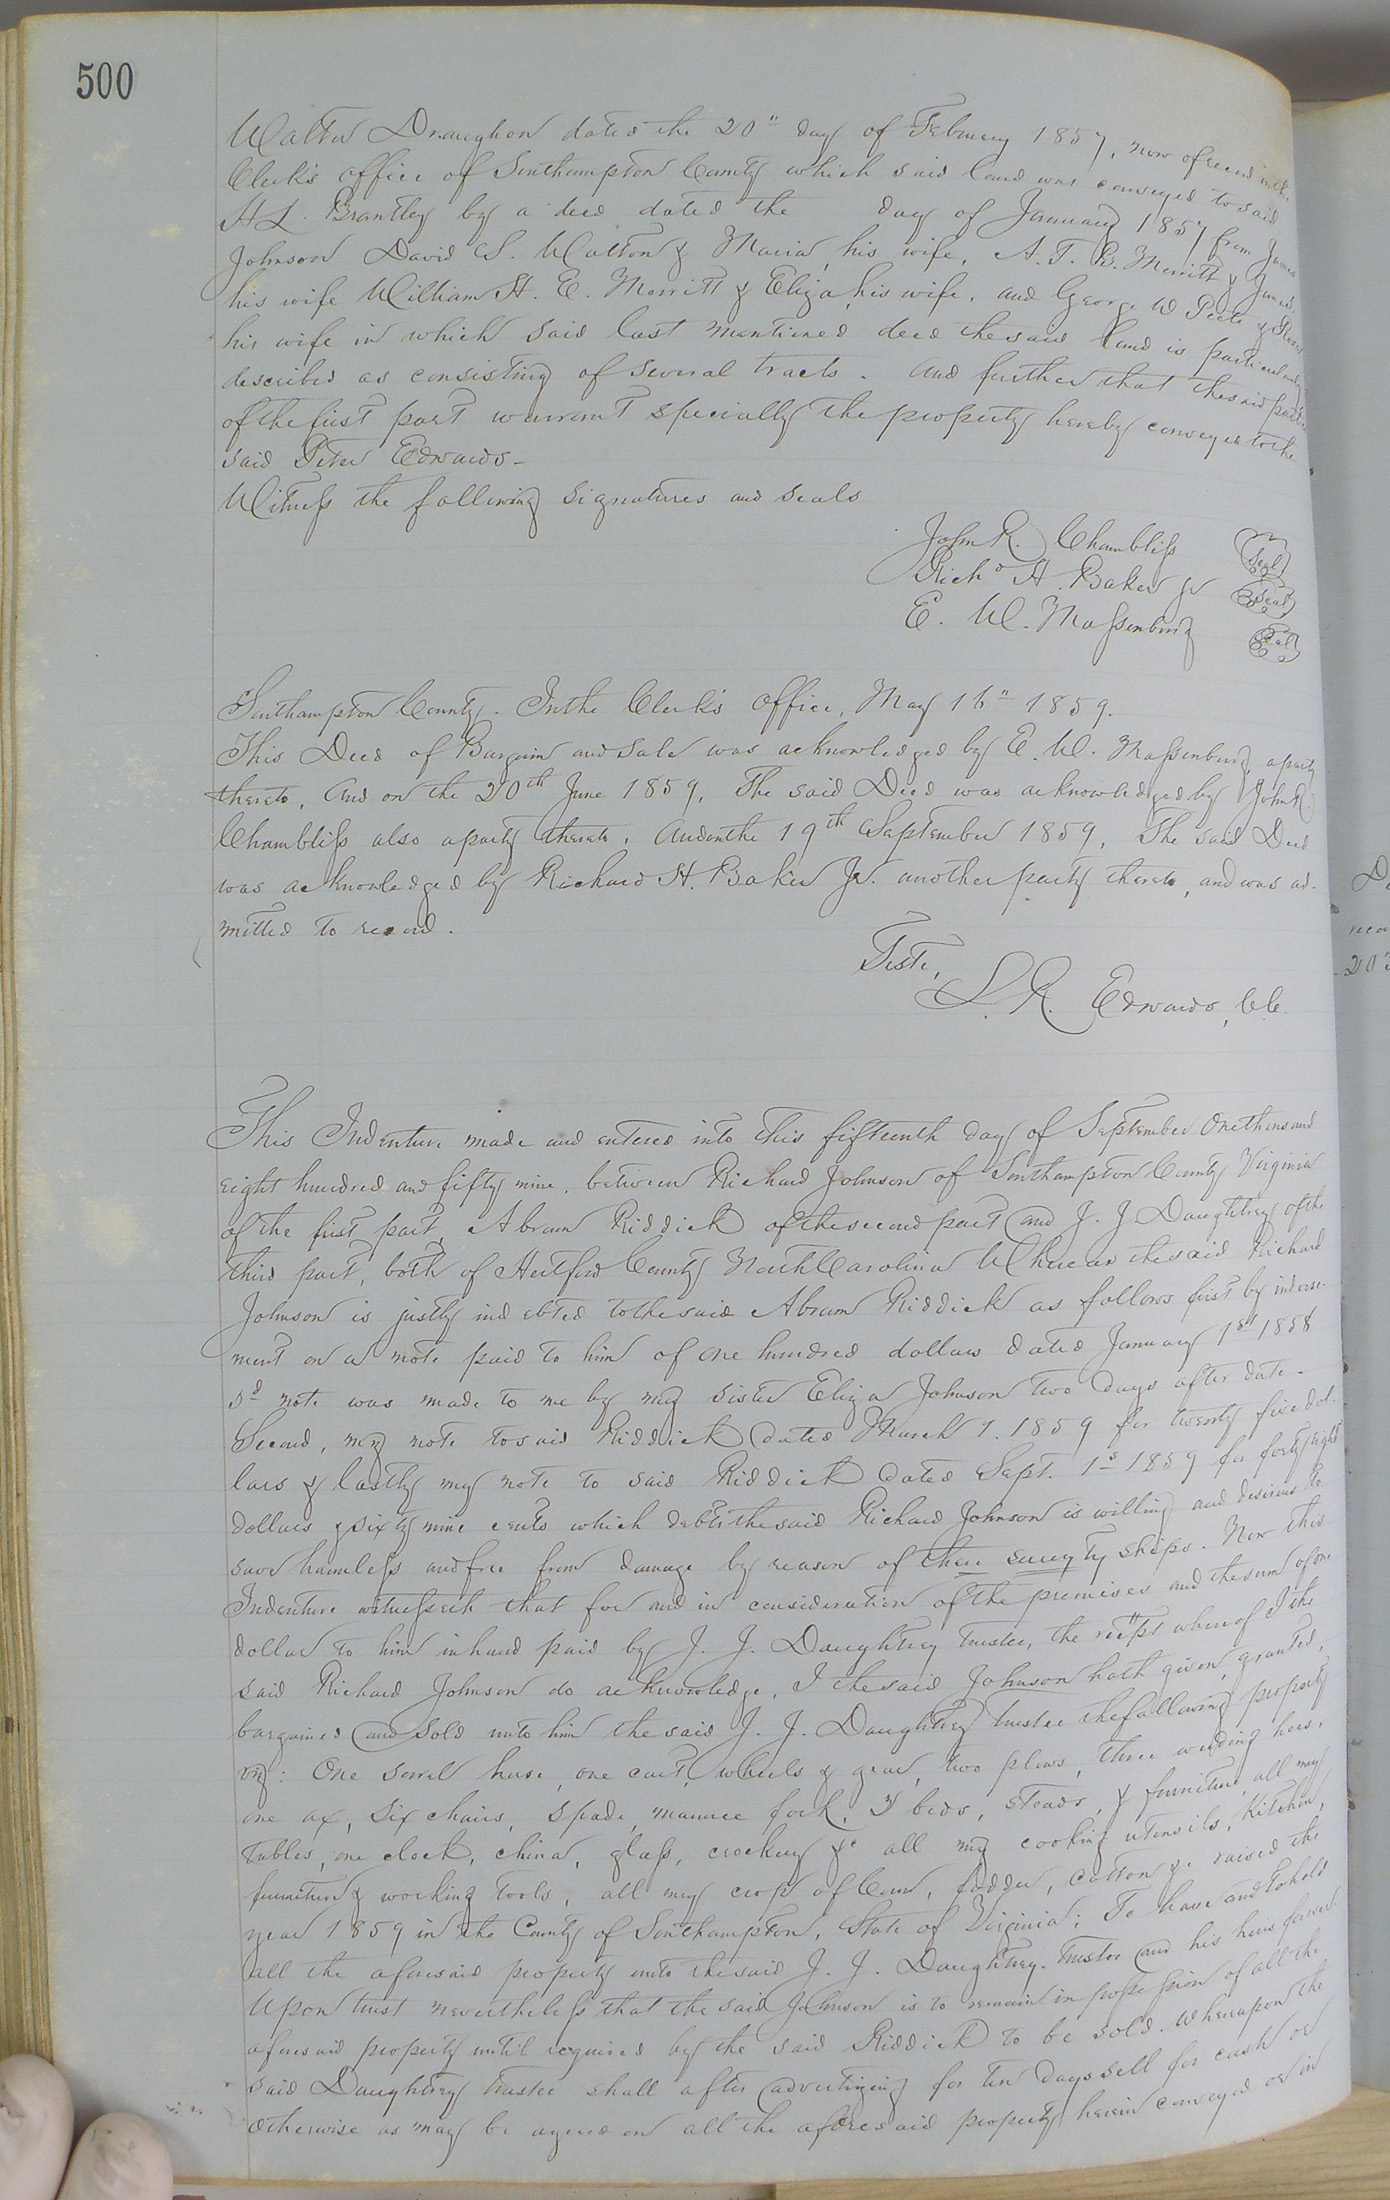 500
Walter Draughon dated the 20" day of February 1857, now of record in the
Clerk's office of Southampton County which said land was conveyed to said
H L. Brantley by a deed dated the day of January 1857 from James
Johnson David S. Watton & Maria, his wife, A. T. B. Merritt &
his wife William H. E. Merritt & Eliza, his wife, and George W Peete &
his wife in which said last mentioned deed the said land is particularly
described as consisting of several tracts. And further that the said parties
of the first part warrant specially the property hereby conveyed to the
said Peter Edwards-
Witness the following signatures and seals
John R. Chambliss Seal
Richd H. Baker Jr Seal
E. W. Massenburg Seal
Southampton County. In the Clerk's office, May 16" 1859.
This Deed of Bargain and Sale was acknowledged by E. W. Massenburg, a party
thereto, And on the 20th June 1859, The said Deed was acknowledged by John R
Chambliss also a party thereto. And on the 19th September 1859, The said Deed
was acknowledged by Richard H. Baker Jr. another party thereto, and was ad-
mitted to record.
Teste,
L. R. Edwards, C.C.
This Indenture made and entered into this fifteenth day of September One thousand
eight hundred and fifty nine, between Richard Johnson of Southampton County Virginia
of the first part, Abram Riddick of the second part and J. J. Daughtrey of the
third part, both of Hertford County North Carolina Whereas the said Richard
Johnson is justly indebted to the said Abram Riddick as follows first by indorse-
ment on a note paid to him of one hundred dollars dated January 1st 1858
sd note was made to me by my sister Eliza Johnson two days after date-
Second, my note to said Riddick dated March 7. 1859 for twenty five dol-
lars & lastly my note to said Riddick dated Sept. 1s 1859 for forty eight
dollars & sixty nine cents which debts the said Richard Johnson is willing and desirous to
save harmless and free from damage by reason of their surety ships. Now this
Indenture witnesseth that for and in consideration of the premises and the sum of one
dollar to him in hand paid by J. J. Daughtrey trustee, the recipt whereof I the
said Richard Johnson do acknowledge, I the said Johnson hath given, granted,
bargained and sold unto him the said J. J. Daughtrey trustee the following property
viz: One sorrel horse, one cart, wheels & gear, two plows, three weeding hoes,
one ax, six chairs, spade, manure fork, 3 beds, steads, & furniture, all my
tables, one clock, china, glass, crockery &c all my cooking utensils, Kitchen,
furniture & working tools, all my crop of Corn, fodder, cotton &c raised the
year 1859 in the County of Southampton, State of Virginia; To have and to hold
all the aforesaid property unto the said J. J. Daughtrey. trustee and his heirs forever.
Upon trust nevertheless that the said Johnson is to remain in possession of all the
aforesaid property until required by the said Riddick to be sold. Whereupon the
said Daughtrey trustee shall after advertizing for ten days sell for cash or
otherwise as may be agreed on all the aforesaid property herein conveyed or in